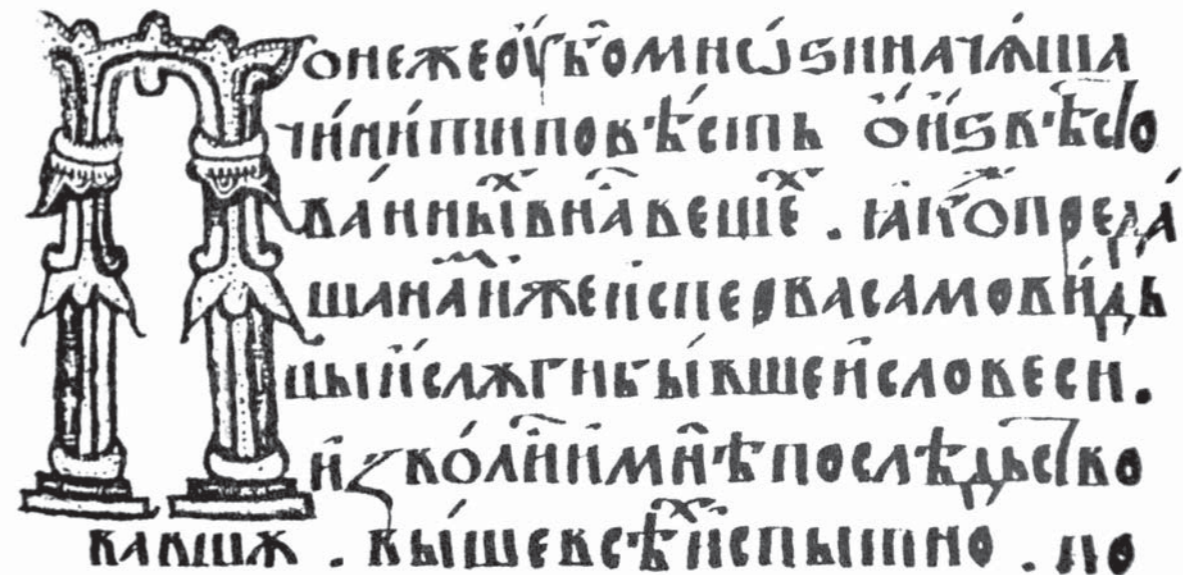 Понежеоуⷠ҇омнѡѕиначѧша
чи́ни́типовѣ́сть ѻ҆и҆ѕвѣсто
ва́нныⷯвнⷭ҇авещеⷯ . ꙗ҆копреда́
шанаⷨи҆жеи҆спервасамови́дь
цыи҆слѫгибы́вшеи҆словеси.
и҆зво́лии҆мнѣпослѣдьство
вавшѫ . вы́шевсѣⷯи҆спытно . по